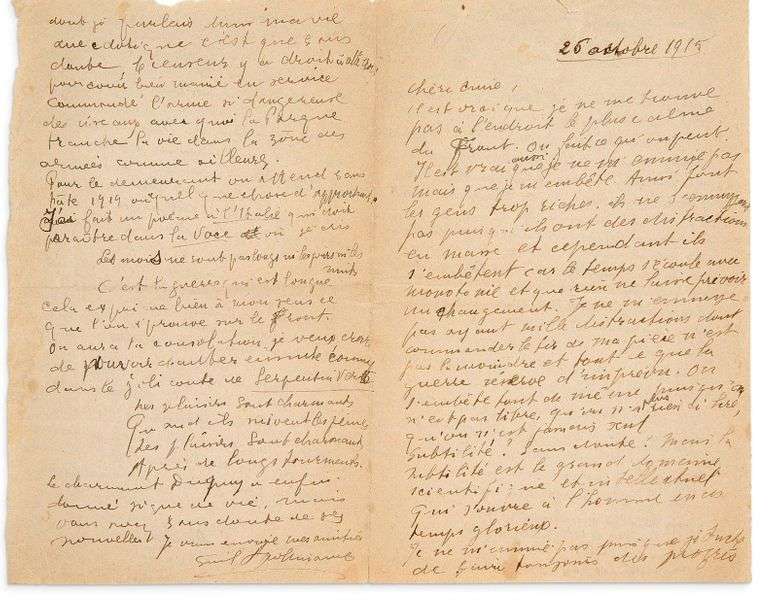 26 octobre 1915
Chère amie,
Il est vrai que je ne me trouve
pas à l'endroit le plus calme
du Front. On fait ce qu'on peut.
Il est vrai aussi que je ne m'ennuie pas
mais que je m'embête. Ainsi font
les gens trop riches. ils ne s'ennuient
pas puisqu'ils ont des distractions
en masse et cependant ils
s'embêtent car le temps s'écoule avec
monotonie et que rien ne laisse prévoir
un changement. Je ne m'ennuie
pas ayant mille distractions dont
commander le tir de ma pièce n'est
pas la moindre et tout ce que la
guerre réserve d'imprévu. On
s'embête tout de même puisqu'on
n'est pas libre, qu'on n'a plus rien à lire,
qu'on n'est jamais seul
Subtilité. Sans doute! Mais la
subtilité est le grand domaine
scientifique et intellectuel
qui s'ouvre à l'homme en ces
temps glorieux.
Je ne m'ennuie pas puisque je tache
de faire toujours des progrès
dont je
ma vie
que c'est que sans
doute le censeur y a droit
pour avoir bien manié en service
commandé l'arme si dangereuse
des ciseaux avec quoi la Parque
tranche la vie dans la zône des
armées comme ailleurs.
Pour le demeurant on attend sans
hâte 1919 ou quelque chose d'approchant.
J'ai fait un poème à l'Italie qui doit
paraître dans la Voce où je dis
Les mois ne sont pas longs ni les jours ni les
nuits
C'est la guerre qui est longue
cela exprime bien à mon sens ce
que l'on éprouve sur le Front.
On aura la consolation, je veux croire
de pouvoir chanter ensuite comme
dans le joli conte de Serpentin Vert
Les plaisirs sont charmants
Quand ils suivent les peines
Les plaisirs sont charmants
Après de longs tourments.
Le charmant Dupuy a enfin
donné signe de vie, mais
vous avez sans doute de ses
nouvelles. Je vous envoie mes amitiés
Guil Apollinaire